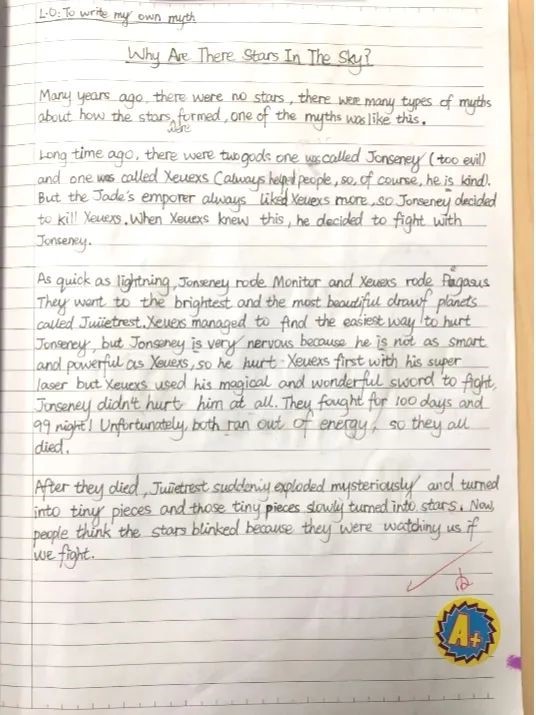 L.O: To write my own myth
Why Are There Stars In The Sky?
Many years ago, there were no stars, there were many types of myths
about how the stars formed, one of the myths was like this.
were
Long time ago, there were two gods one was called Jonseney (too evil)
and one was called Xeuexs (always helped people, so, of course, he is kind).
But the Jade's emporer always liked Xeuexs more, so Jonseney decided
to kill Xeuexs. When Xeuexs knew this, he decided to fight with
Jonseney.
As quick as lightning, Jonseney rode Monitor and Xeuexs rode Pagasus
e
They want to the brightest and the most beautiful drawf planets
called Juiietrest. Xeuexs managed to find the easiest way to hurt
Jonseney, but Jonseney is very nervous because he is not as smart
and powerful as Xeuexs, so he hurt Xeuexs first with his super
laser but Xeuexs used his magical and wonderful sword to fight,
Jonseney didn't hurt him at all. They fought for 100 days and
99 night! Unfortunately, both ran out of energy, so they all
died.
After they died, Juiietrest suddeniy exploded mysteriously and turned
into tiny pieces and those tiny pieces slowly turned into stars. Now,
people think the stars blinked because they were watching us if
we fight.
A+